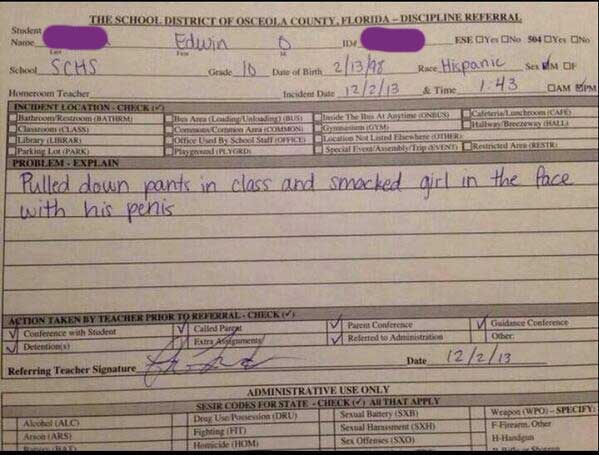 THE SCHOOL DISTRICT OF OSCEOLA COUNTY, FLORIDA – DISCIPLINE REFERRAL
Student
Name Edwin O ID# ESE Yes No 504 Yes No
Last First MI
School SCHS Grade 10 Date of Birth 2/13/98 Race Hispanic Sex M F
Homeroom Teacher Incident Date 12/2/13 & Time 1:43 AM PM
INCIDENT LOCATION - CHECK (✓)
Bathroom/Restroom (BATHRM) Bus Area (Loading/Unloading) (BUS) Inside The Bus At Anytime (ONBUS) Cafeteria/Lunchroom (CAFE)
Classroom (CLASS) Commons/Common Area (COMMON) Gymnasium (GYM) Hallway/Breezeway (HALL)
Library (LIBRAR) Office Used By School Staff (OFFICE) Location Not Listed Elsewhere (OTHER)
Parking Lot (PARK) Playground (PLYGRD) Special Event/Assembly/Trip (EVENT) Restricted Area (RESTR)
PROBLEM - EXPLAIN
Pulled down pants in class and smacked girl in the face
with his penis
ACTION TAKEN BY TEACHER PRIOR TO REFERRAL - CHECK (✓)
✓ Conference with Student ✓ Called Parent ✓ Parent Conference ✓ Guidance Conference
✓ Detention(s) Extra Assignments ✓ Referred to Administration Other:
Referring Teacher Signature Date 12/2/13
ADMINISTRATIVE USE ONLY
SESIR CODES FOR STATE - CHECK (✓) All THAT APPLY
Alcohol (ALC) Drug Use/Possession (DRU) Sexual Battery (SXB) Weapon (WPO) – SPECIFY:
Arson (ARS) Fighting (FIT) Sexual Harassment (SXH) F-Firearm, Other
Battery (BAT) Homicide (HOM) Sex Offenses (SXO) H-Handgun